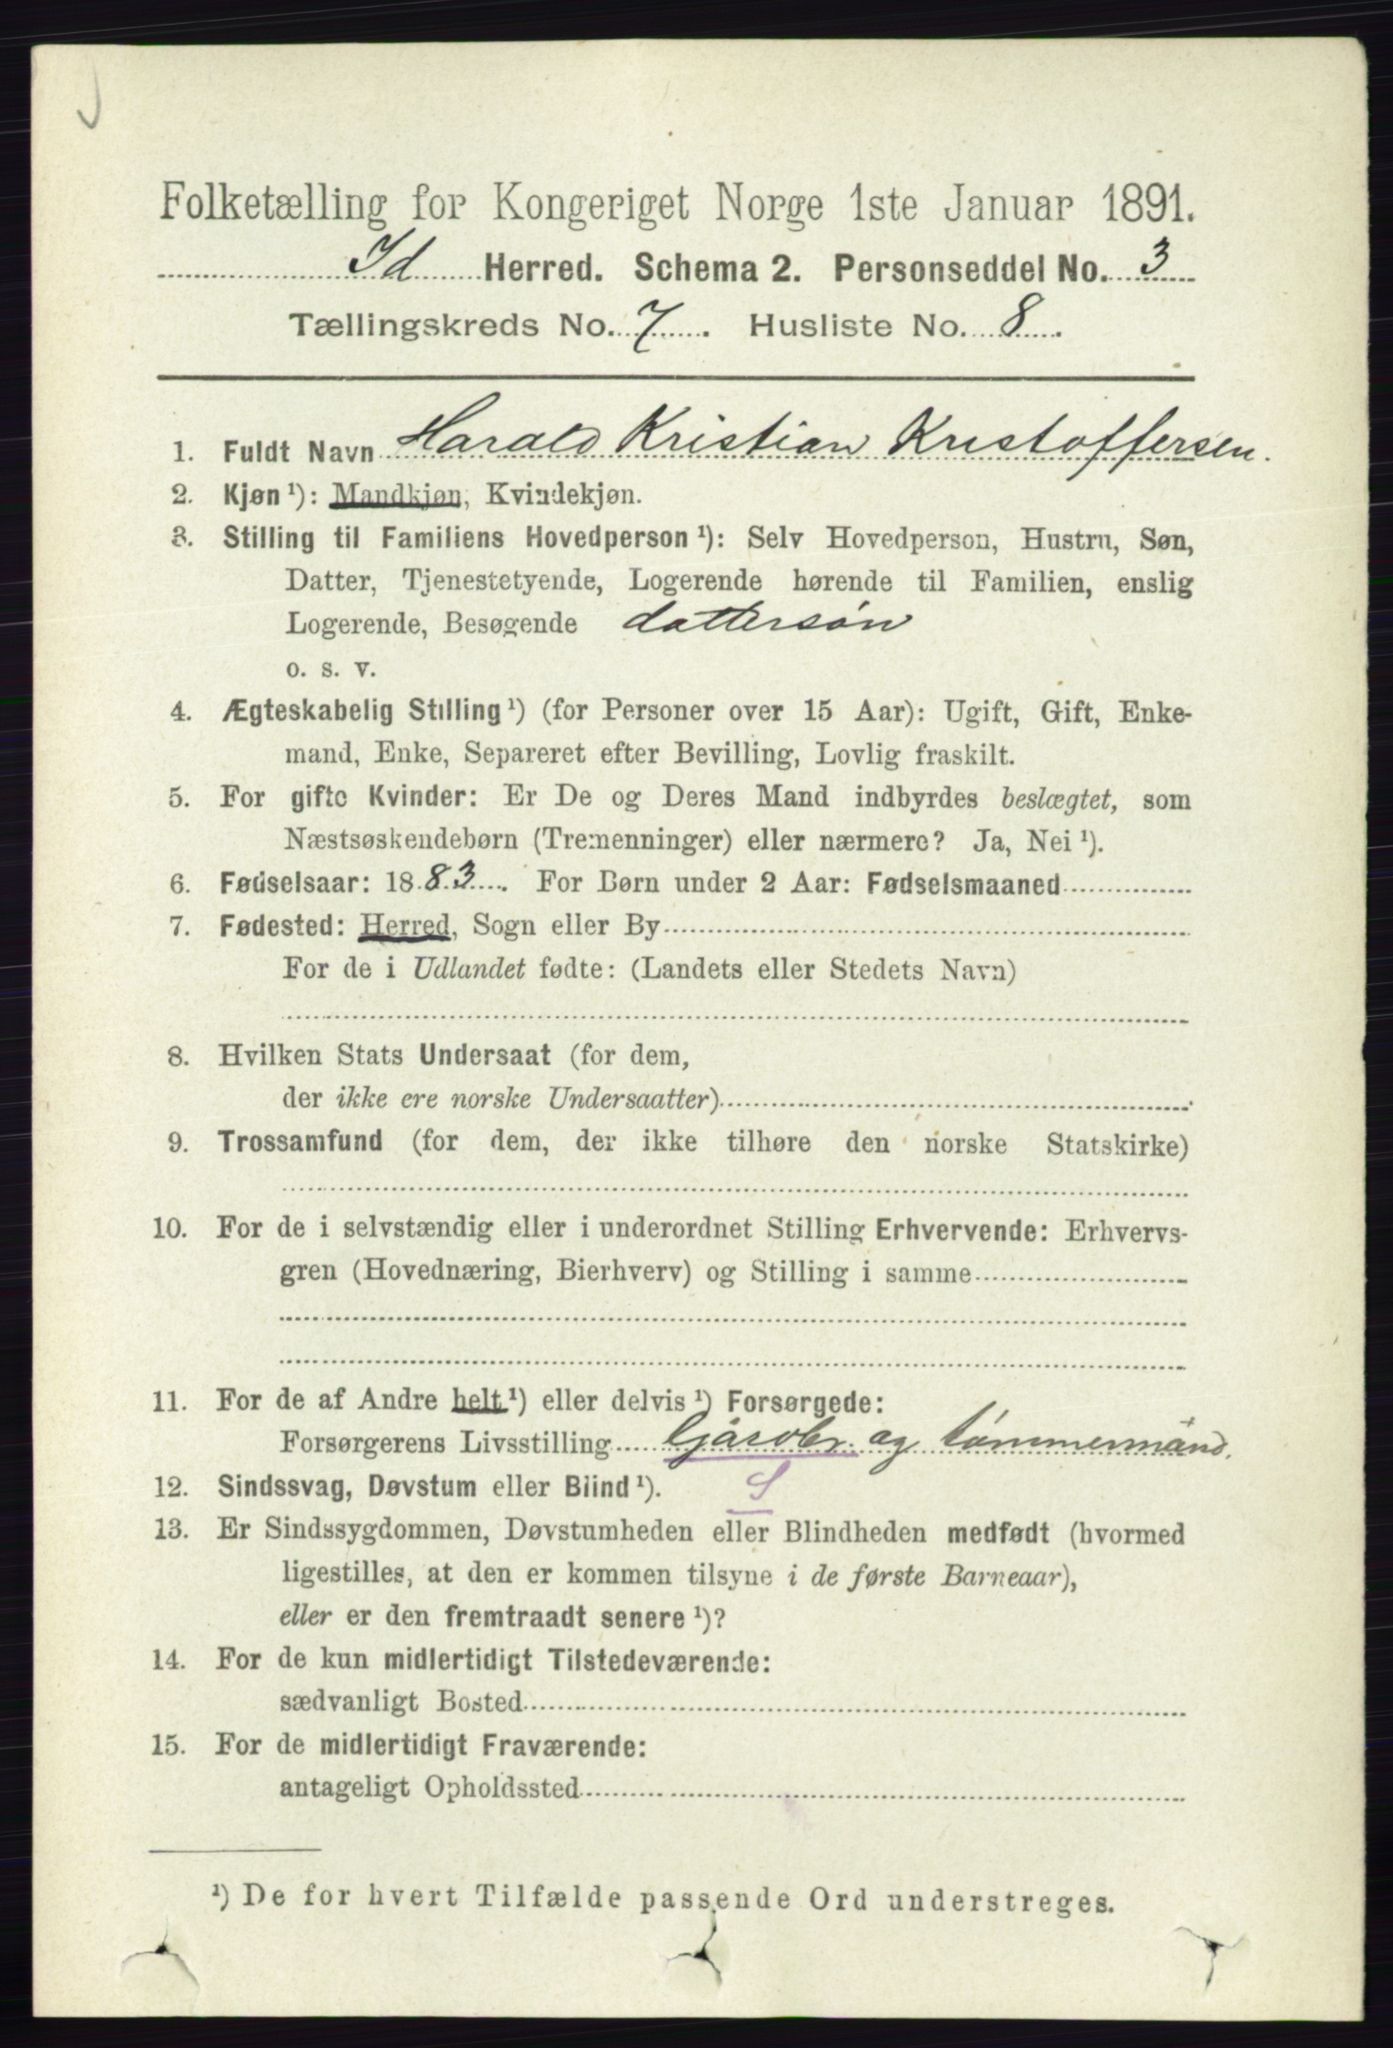 Folketælling for Kongeriget Norge 1ste Januar 1891.
Id Herred. Schema 2. Personseddel No. 3
Tællingskreds No. 7. Husliste No. 8.
1. Fuldt Navn Harald Kristian Kristoffersen.
2. Kjøn¹): Mandkjøn, Kvindekjøn.
3. Stilling til Familiens Hovedperson¹): Selv Hovedperson, Hustru, Søn,
Datter, Tjenestetyende, Logerende hørende til Familien, enslig
Logerende, Besøgende dattersøn
o. s. v.
4. Ægteskabelig Stilling¹) (for Personer over 15 Aar): Ugift, Gift, Enke-
mand, Enke, Separeret efter Bevilling, Lovlig fraskilt.
5. For gifte Kvinder: Er De og Deres Mand indbyrdes beslægtet, som
Næstsøskendebørn (Tremenninger) eller nærmere? Ja, Nei¹).
6. Fødselsaar: 1883. For Børn under 2 Aar: Fødselsmaaned
7. Fødested: Herred, Sogn eller By
For de i Udlandet fødte: (Landets eller Stedets Navn)
8. Hvilken Stats Undersaat (for dem,
der ikke ere norske Undersaatter)
9. Trossamfund (for dem, der ikke tilhøre den norske Statskirke)
10. For de i selvstændig eller i underordnet Stilling Erhvervende: Erhvervs-
gren (Hovednæring, Bierhverv) og Stilling i samme
11. For de af Andre helt¹) eller delvis¹) Forsørgede:
Forsørgerens Livsstilling Gårdbr. og tømmermand.
12. Sindssvag, Døvstum eller Blind¹). S
13. Er Sindssygdommen, Døvstumheden eller Blindheden medfødt (hvormed
ligestilles, at den er kommen tilsyne i de første Barneaar),
eller er den fremtraadt senere¹)?
14. For de kun midlertidigt Tilstedeværende:
sædvanligt Bosted
15. For de midlertidigt Fraværende:
antageligt Opholdssted
¹) De for hvert Tilfælde passende Ord understreges.